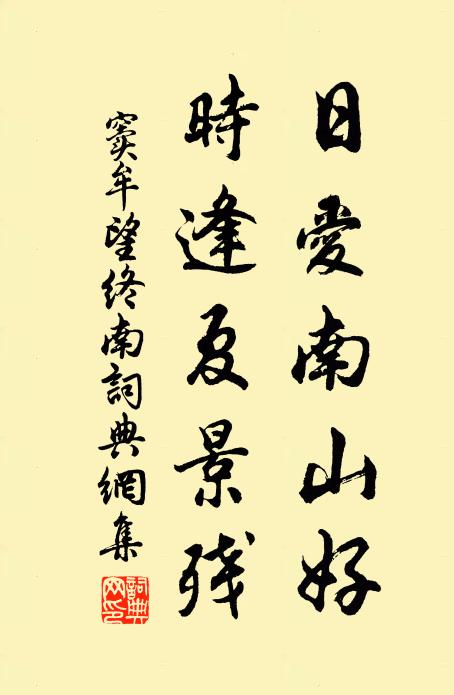 日愛南山好
時逢夏景残
竇牟望終南詞典網集
詞典网印